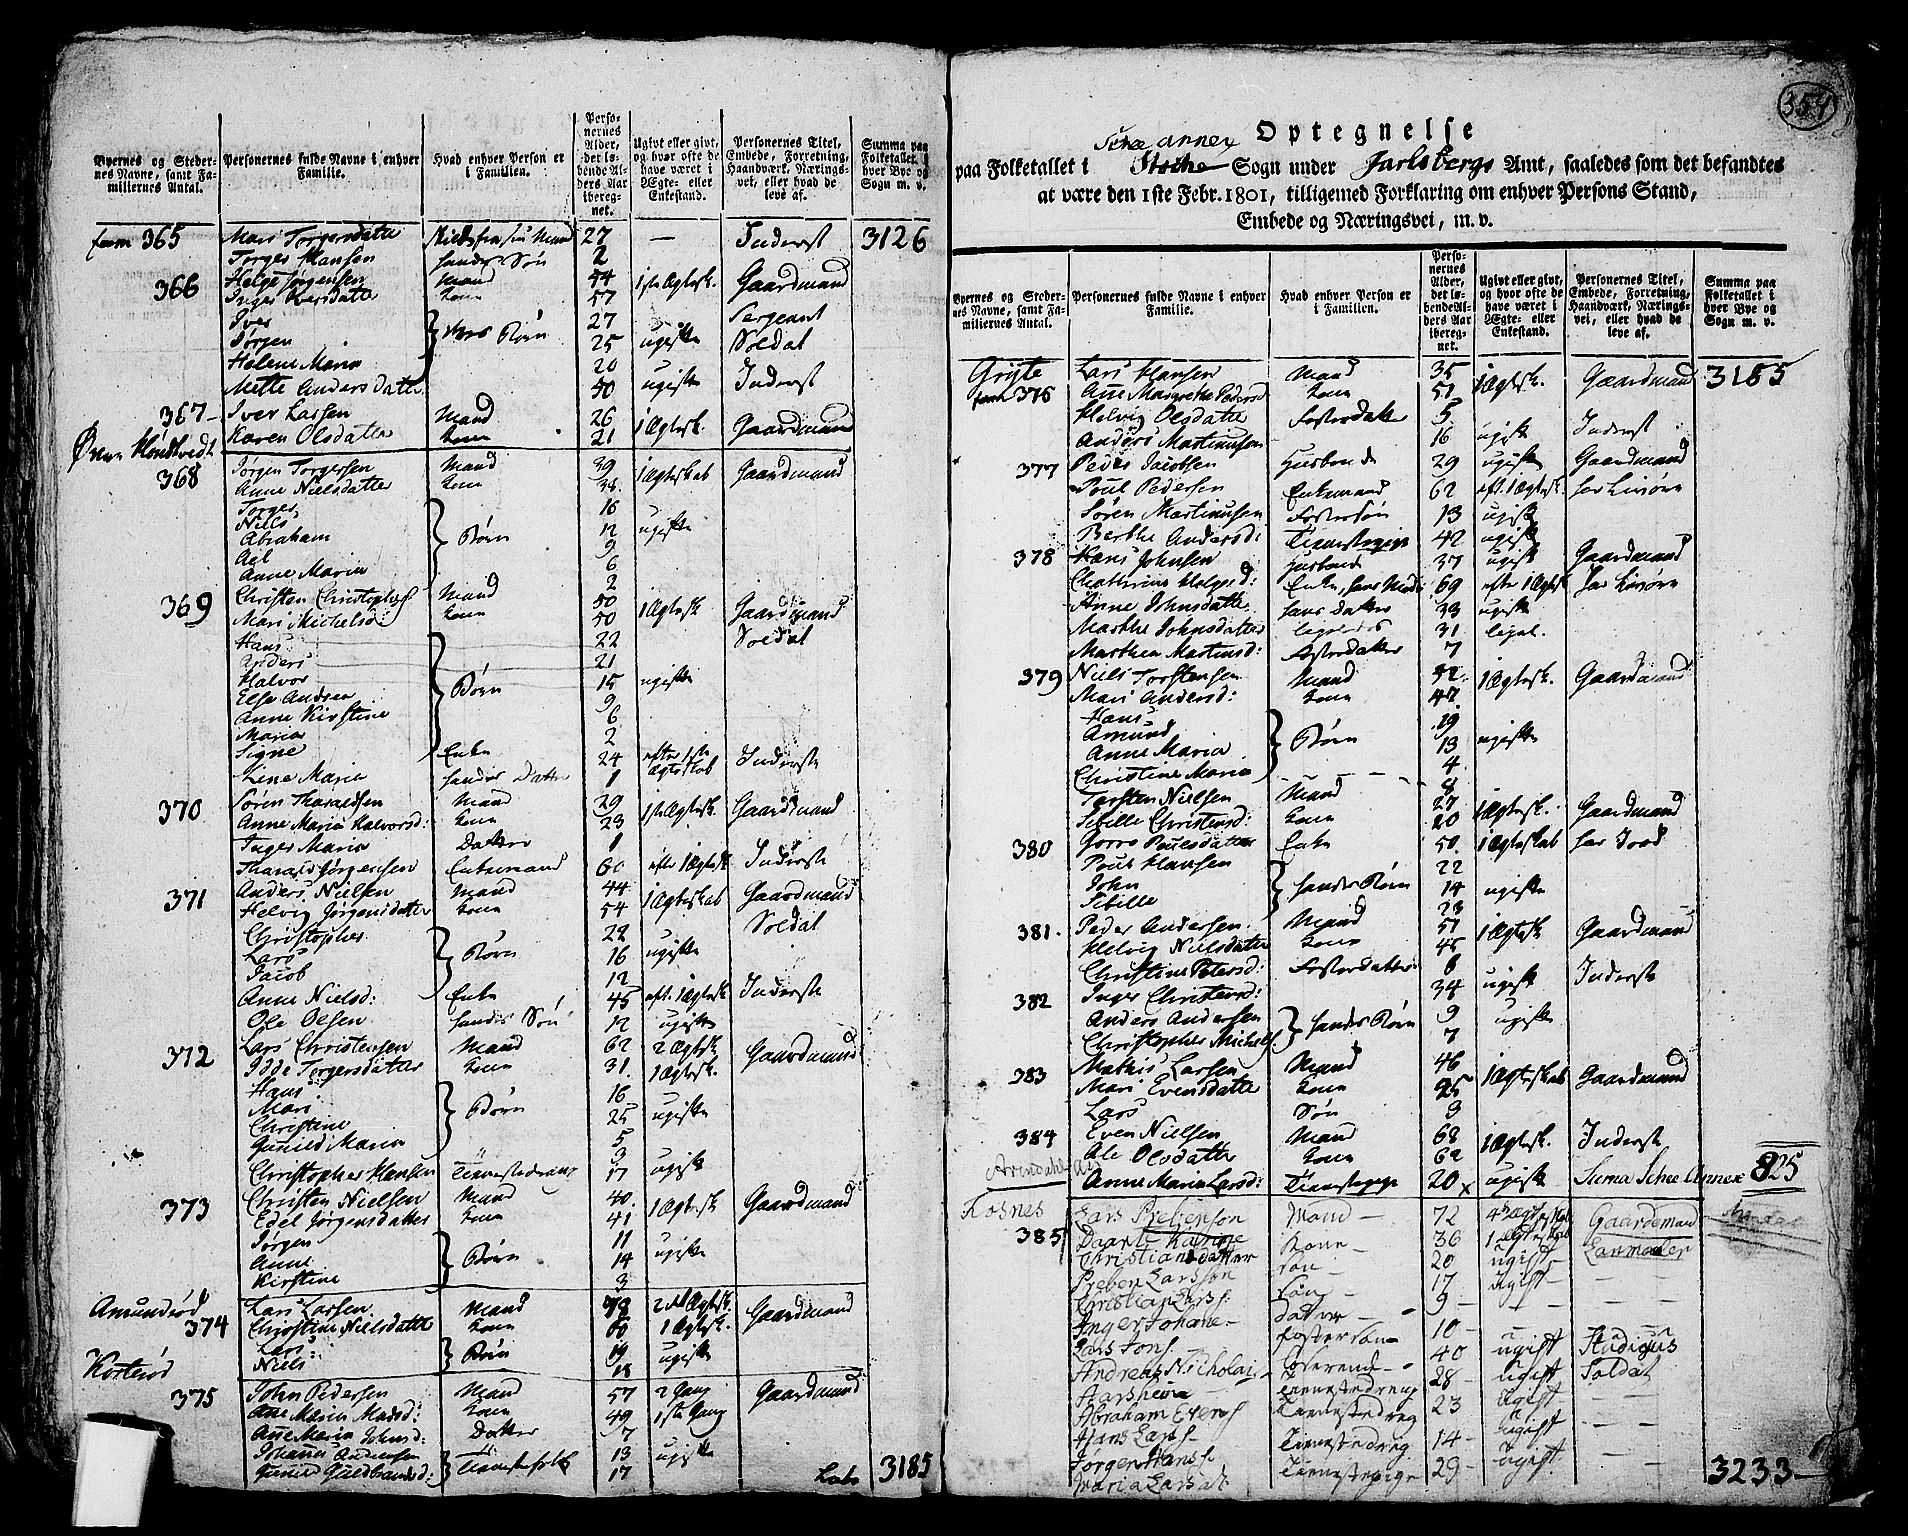 354
Byernes og Stedernes Navne, samt Familiernes Antal.
Personernes fulde Navne i enhver Familie.
Hvad enhver Person er i Familien.
Personernes Alder, det løbende Alders Aar iberegnet.
Ugivt eller givt, og hvor ofte de have været i Ægte- eller Enkestand.
Personernes Titel, Embede, Forretning, Haandværk, Næringsvei, eller hvad de leve af.
Summa paa Folketallet i hver Bye og Sogn m. v.
fam 365 Mari Torgersdatter 27 — Inderst 3126
Torger Hansen hendes Søn 2
366 Helge Jørgensen Mand 44 1ste Ægtesk. Gaardmand
Inger Iversdatter kone 57
Iver 27 Sergeant
Jørgen Børn 25 ugifte Soldat
Helene Maria 20
Mette Andersdatter 50 ugifte Inderst
367 Iver Larsen Mand 26 1 Ægtesk. Gaardmand
Karen Olsdatter kone 21
368 Jørgen Torgersen Mand 39 1 Ægteskab Gaardmand
Anne Nielsdatter kone 38
Torger 16
Niels 12 ugifte
Abraham Børn 9
Ael 6
Anne Maria 2
369 Christen Christophers Mand 50 1 Ægtesk Gaardmand
Mari Michelsd: kone 50
Hans 22 Soldat
Anders 21
Halvor 15 ugifte
Else Andrea Børn 9
Anne Kirstine 6
Maria 2
Signe Enke 24 efter 1ste Ægteskab Inderste
Line Maria hendes Datter 1
370 Søren Tharaldsen Mand 29 1ste Ægtesk. Gaardmand
Anne Maria Halvorsd: kone 23
Inger Maria Datter 1
Tharald Jørgensen Enkemand 60 efter 1 Ægtesk Inderste
371 Anders Nielsen Mand 44 1 Ægteskab Gaardmand
Helvig Jørgensdatter kone 54
Christopher 22 Soldat
Lars Børn 16 ugifte
Jacob 12
Anne Nielsd: Enke 45 eft. 1 Ægtesk Inderste
Ole Olsen hendes Søn 12 ugifte
372 Lars Christensen Mand 62 2 Ægtesk Gaardmand
Idde Torgersdatter kone 31. 1 Ægtesk.
Hans 16
Mari Børn 25 ugifte
Christine 5
Gunild Maria 3
Christopher Hansen Tienestedreng 17 ugift
373 Christen Nielsen Mand 40. 1 Ægtesk Gaardmand
Edel Jørgensdatter kone 41
Jørgen 11
Anne Børn 14 ugifte
Kirstine 3
Amundrød
374 Lars Larsen Mand 78 2 Ægtesk. Gaardmand
Christine Nielsdatter kone 60 1 Ægtesk.
Lars 19
Niels Børn 18 ugifte
Korterød
375 John Pedersen Mand 57 2 Gang Gaardmand
Ane Maria Madsd: kone 49 1ste Gang
Ane Maria Johnsd: Datter 7
Johanes Andersen 13 ugifte
Gunild Guldbrandsd: Tienestefolk 17
Lats 3185
Optegnelse
paa Folketallet i Sche annex Stoche Sogn under Jarlsbergs Amt, saaledes som det befandtes
at være den 1ste Febr. 1801, tilligemed Forklaring om enhver Persons Stand,
Embede og Næringsvei, m. v.
Byernes og Stedernes Navne, samt Familiernes Antal.
Personernes fulde Navne i enhver Familie.
Hvad enhver Person er i Familien.
Personernes Alder, det løbende Alders Aar iberegnet.
Ugivt eller givt, og hvor ofte de have været i Ægte- eller Enkestand.
Personernes Titel, Embede, Forretning, Haandværk, Næringsvei, eller hvad de leve af.
Summa paa Folketallet i hver Bye og Sogn m. v.
Gryte Lars Hansen Mand 35 1 Ægtesk. Gaardmand 3185
fam 376 Ane Margrethe Pedersd kone 51
Helvig Olsdatter Fosterdatter 5
Anders Martinusen 16 ugift Inderst
377 Peder Jacobsen Husbonde 29 ugift Gaardmand
Poul Pedersen Enkemand 62 eft. 1 Ægtesk. har Livøre
Søren Martinusen Fostersøn 13 ugift
Berthe Andersd: Tienestepige 42 ugift
378 Hans Johnsen Husbond 37 ugift Gaardmand
Chathrine Helgesd: Enke, hans Moder 69 efter 1 Ægtesk har Livøre
Anne Johnsdatter hans Datter 33 ugifte
Marthe Johnsdatter ligeledes 31 ligel.
Marthea Martinsd: Fosterdatter 7
379 Niels Torstensen Mand 52. 1 Ægtesk. Gaardmand
Mari Andersd: kone 47
Hans 19
Amund Børn 13 ugifte
Anne Maria 4
Christine Maria 8
Torsten Nielsen Mand 27 1 Ægtesk. Gaardmand
Sebille Christensd: kone 20
380 Gorro Poulsdatter Enke 50. 1 Ægteskab har Jord
Poul Hansen 22
John hendes Børn 14 ugifte
Sebille 23
381. Peder Andersen Mand 51 1 Ægtesk Gaardmand
Helvig Nielsdatter kone 45
Christine Petersd: Fosterdatter 6
382 Inger Christensd: 34 ugift Inderste
Anders Andersen hendes Børn 9 ugifte
Christopher Michels 7
383 Mathis Larsen Mand 46 1 Ægteskab Gaardmand
Mari Evensdatter kone 25
Lars Søn 3
384 Even Nielsen Mand 68 1 Ægtesk. Inderste
Ale Olsdatter kone 62
Anne Maria Larsd: Tienestepige 20 x ugifte Suma Schee Annex 825
Fosnes Lars Prebenson Mand — 72 4 Ægteskab Gaardemand
385 Daarte Katrine kone — 36 1 Ægteskab Lanmaaler
Christiansdatter
Preben Larsson Søn — 20 ugift —
Christian Lars f. Søn — 17 ugift —
Inger Johane — Datter 9 — —
Lars Jons f. foster søn — 10 —
Andreas Nicholai Loserende — 40 ugift Studigus
Aarsheim Tienestedreng 28 — ugift Soldat
Abraham Evers f. Tienestedreg 23 ugift
Hans Lars f. Tienestedreg 14 — ugift — —
Jørgen Hans f.
Maria Larsdt. Tienestepige 29 — ugift.
3233